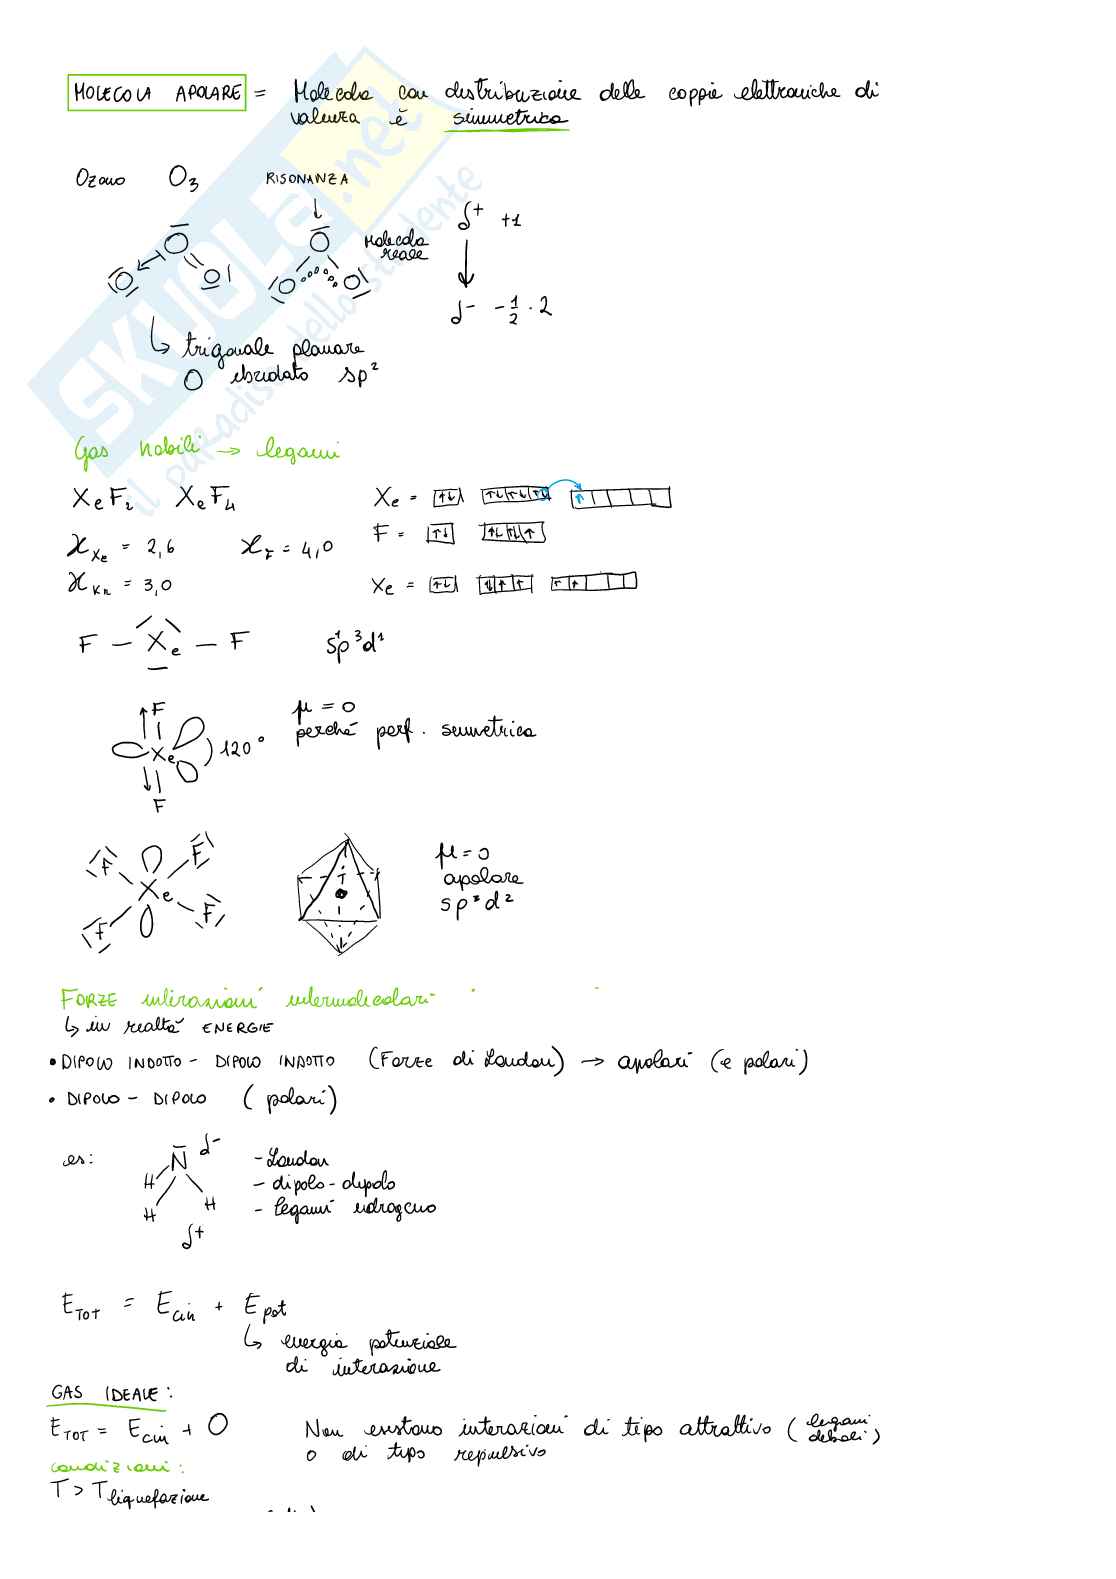 MOLECOLA APOLARE = Molecola con distribuzione delle coppie elettroniche di
valenza è simmetrica
Ozono O₃ RISONANZA
Molecola
reale
δ+ +1
δ- -1/2 · 2
↳ trigonale planare
O ibridato sp²
Gas nobili → legami
XeF₂ XeF₄ Xe = ↑↓ ↑↓ ↑↓ ↑↓ ↑
F = ↑↓ ↑↓ ↑↓ ↑
χXe = 2,6 χF = 4,0
χKr = 3,0 Xe = ↑↓ ↑↓ ↑ ↑ ↑ ↑
F – Xe – F s¹p³d¹
F
Xe 120°
F
μ = 0
perché perf. simmetrica
F F
Xe
F F
μ = 0
apolare
sp³d²
FORZE interazioni intermolecolari
↳ in realtà ENERGIE
• DIPOLO INDOTTO - DIPOLO INDOTTO (Forze di London) → apolari (e polari)
• DIPOLO - DIPOLO (polari)
es: N δ-
H H H
δ+
- London
- dipolo-dipolo
- legami idrogeno
E TOT = E cin + E pot
↳ energia potenziale
di interazione
GAS IDEALE:
E TOT = E cin + O Non esistono interazioni di tipo attrattivo (legami deboli)
o di tipo repulsivo
condizioni:
T > T liquefazione
SKUOLA.net
il paradiso dello studente